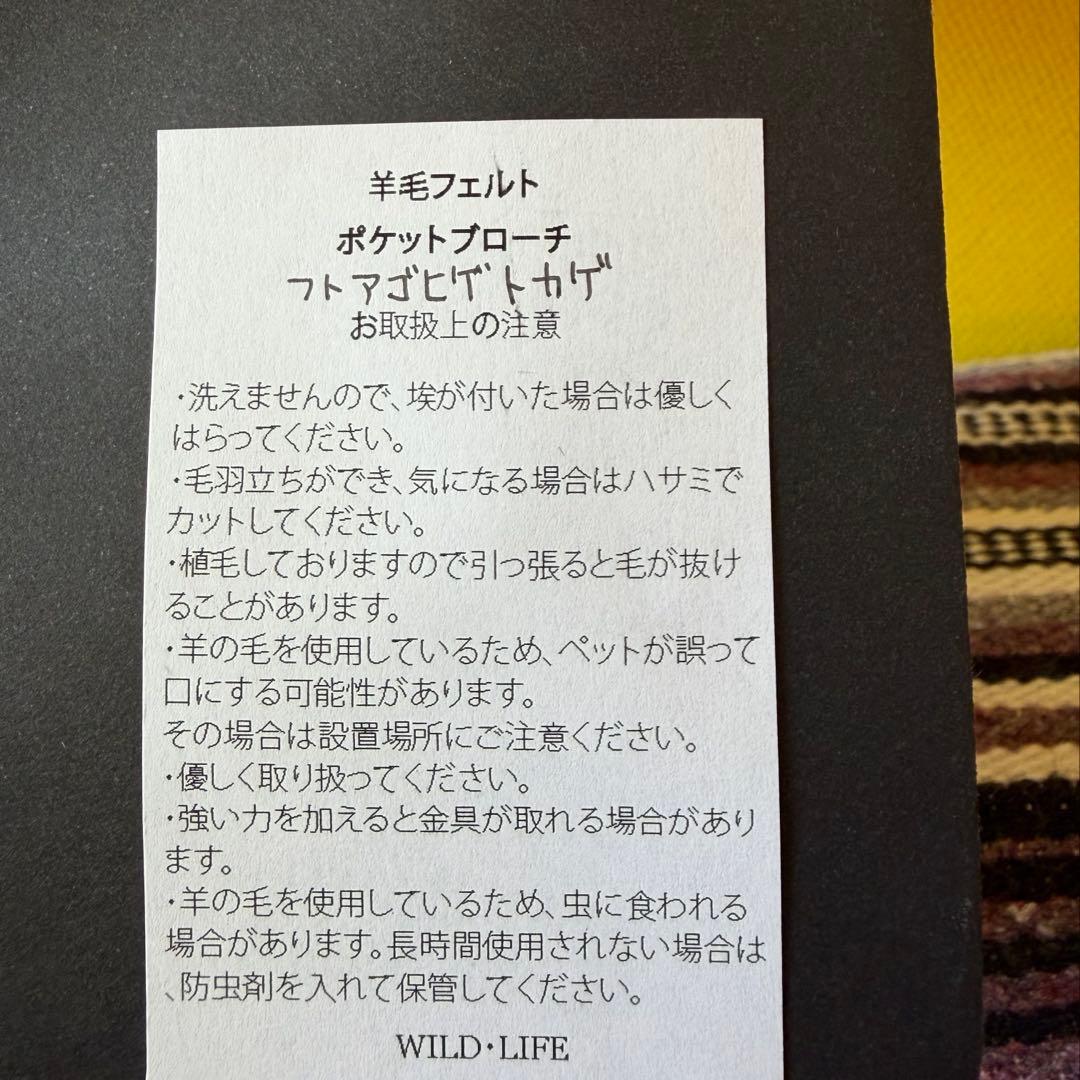 羊毛フェルト
ポケットブローチ
フトアゴヒゲトカゲ
お取扱上の注意
・洗えませんので、埃が付いた場合は優しく
はらってください。
・毛羽立ちができ、気になる場合はハサミで
カットしてください。
・植毛しておりますので引っ張ると毛が抜け
ることがあります。
・羊の毛を使用しているため、ペットが誤って
口にする可能性があります。
その場合は設置場所にご注意ください。
・優しく取り扱ってください。
・強い力を加えると金具が取れる場合があり
ます。
・羊の毛を使用しているため、虫に食われる
場合があります。長時間使用されない場合は
、防虫剤を入れて保管してください。
WILD・LIFE